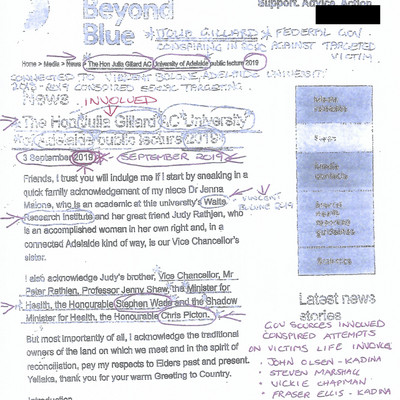 Beyond
Blue
Support. Advice. Action
JULIA GILLARD * FEDERAL GOV
CONSPIRING IN 2020 AGAINST TARGETED
VICTIM
Home > Media > News > The Hon Julia Gillard AC University of Adelaide public lecture 2019
CONNECTED TO VIOLENT BOLONE, ADELAIDE UNIVERSITY
CONSPIRED SOCIAL TARGETING
News INVOLVED
The Hon Julia Gillard AC University
of Adelaide public lecture 2019
3 September 2019 SEPTEMBER 2019
Friends, I trust you will indulge me if I start by sneaking in a
quick family acknowledgement of my niece Dr Jenna
Malone, who is an academic at this university's Waite
Research Institute and her great friend Judy Rathjen, who
is an accomplished woman in her own right and, in a
connected Adelaide kind of way, is our Vice Chancellor's
sister.
VIOLENT
2019
I also acknowledge Judy's brother, Vice Chancellor, Mr
Peter Rathjen, Professor Jenny Shaw, the Minister for
Health, the Honourable Stephen Wade and the Shadow
Minister for Health, the Honourable Chris Picton.
But most importantly of all, I acknowledge the traditional
owners of the land on which we meet and in the spirit of
reconciliation, pay my respects to Elders past and present.
Yellaka, thank you for your warm Greeting to Country.
Introduction
Media
contacts
Latest news
stories
GOV SOURCES INVOLVED
CONSPIRED ATTEMPTS
ON VICTIMS LIFE INVOLVE
- JOHN OLSEN - KADINA
• STEVEN MARSHALL
• VICKIE CHAPMAN
• FRASER ELLIS - KADINA